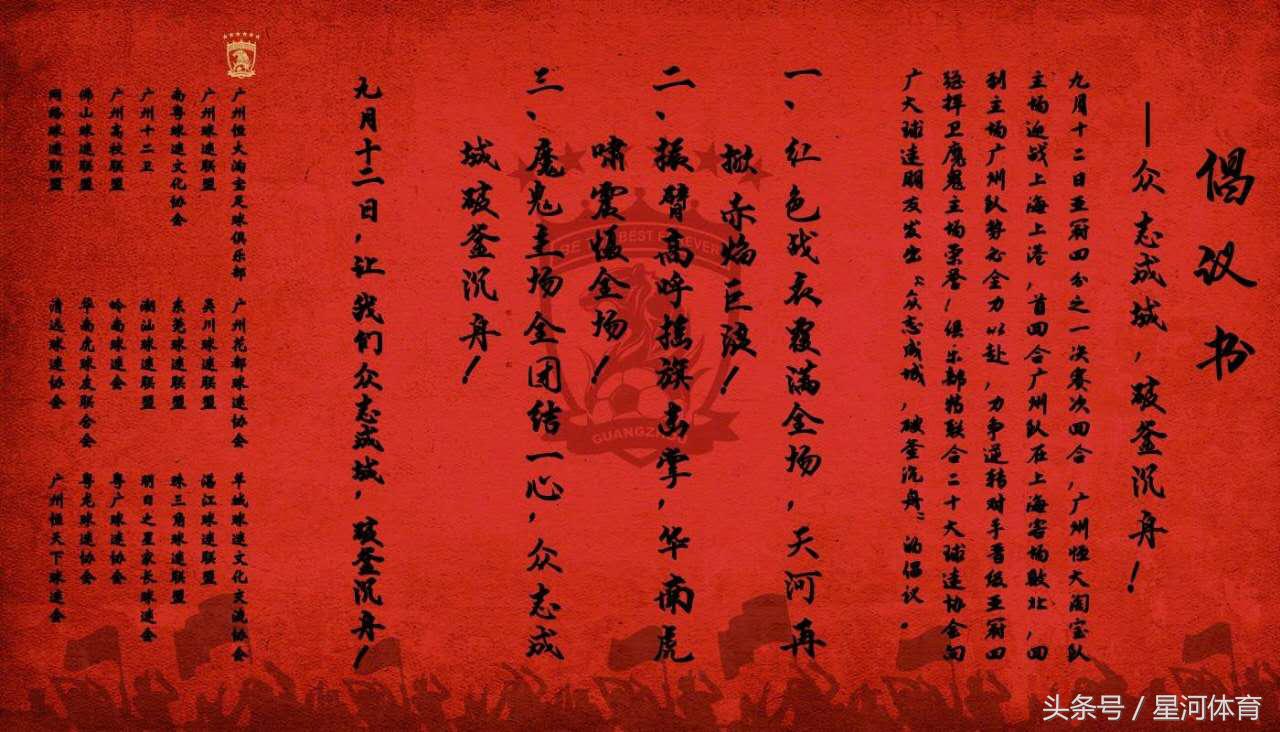 倡议书
——众志成城，破釜沉舟！
九月十二日亚冠四分之一决赛次回合，广州恒大淘宝队
主场迎战上海上港，首回合广州队在上海客场败北，回
到主场广州队势必全力以赴，力争逆转对手晋级亚冠四
强捍卫魔鬼主场荣誉！俱乐部特联合二十大球迷协会向
广大球迷朋友发出“众志成城，破釜沉舟”的倡议。
一、红色战衣覆满全场，天河再
掀赤焰巨浪！
二、振臂高呼摇旗击掌，华南虎
啸震慑全场！
三、魔鬼主场全团结一心，众志成
城破釜沉舟！
九月十二日，让我们众志成城，破釜沉舟！
广州恒大淘宝足球俱乐部 广州花都球迷协会 羊城球迷文化交流协会
广州球迷联盟 吴川球迷联盟 湛江球迷联盟
南粤球迷文化协会 东莞球迷联盟 珠三角球迷联盟
广州十二卫 潮汕球迷联盟 明日之星家长球迷会
广州高校联盟 岭南球迷会 粤广球迷协会
佛山球迷联盟 华南虎球友联合会 粤龙球迷协会
网络球迷联盟 清远球迷协会 广州恒天下球迷会
BE THE BEST FOREVER
GUANGZHOU
头条号 / 星河体育